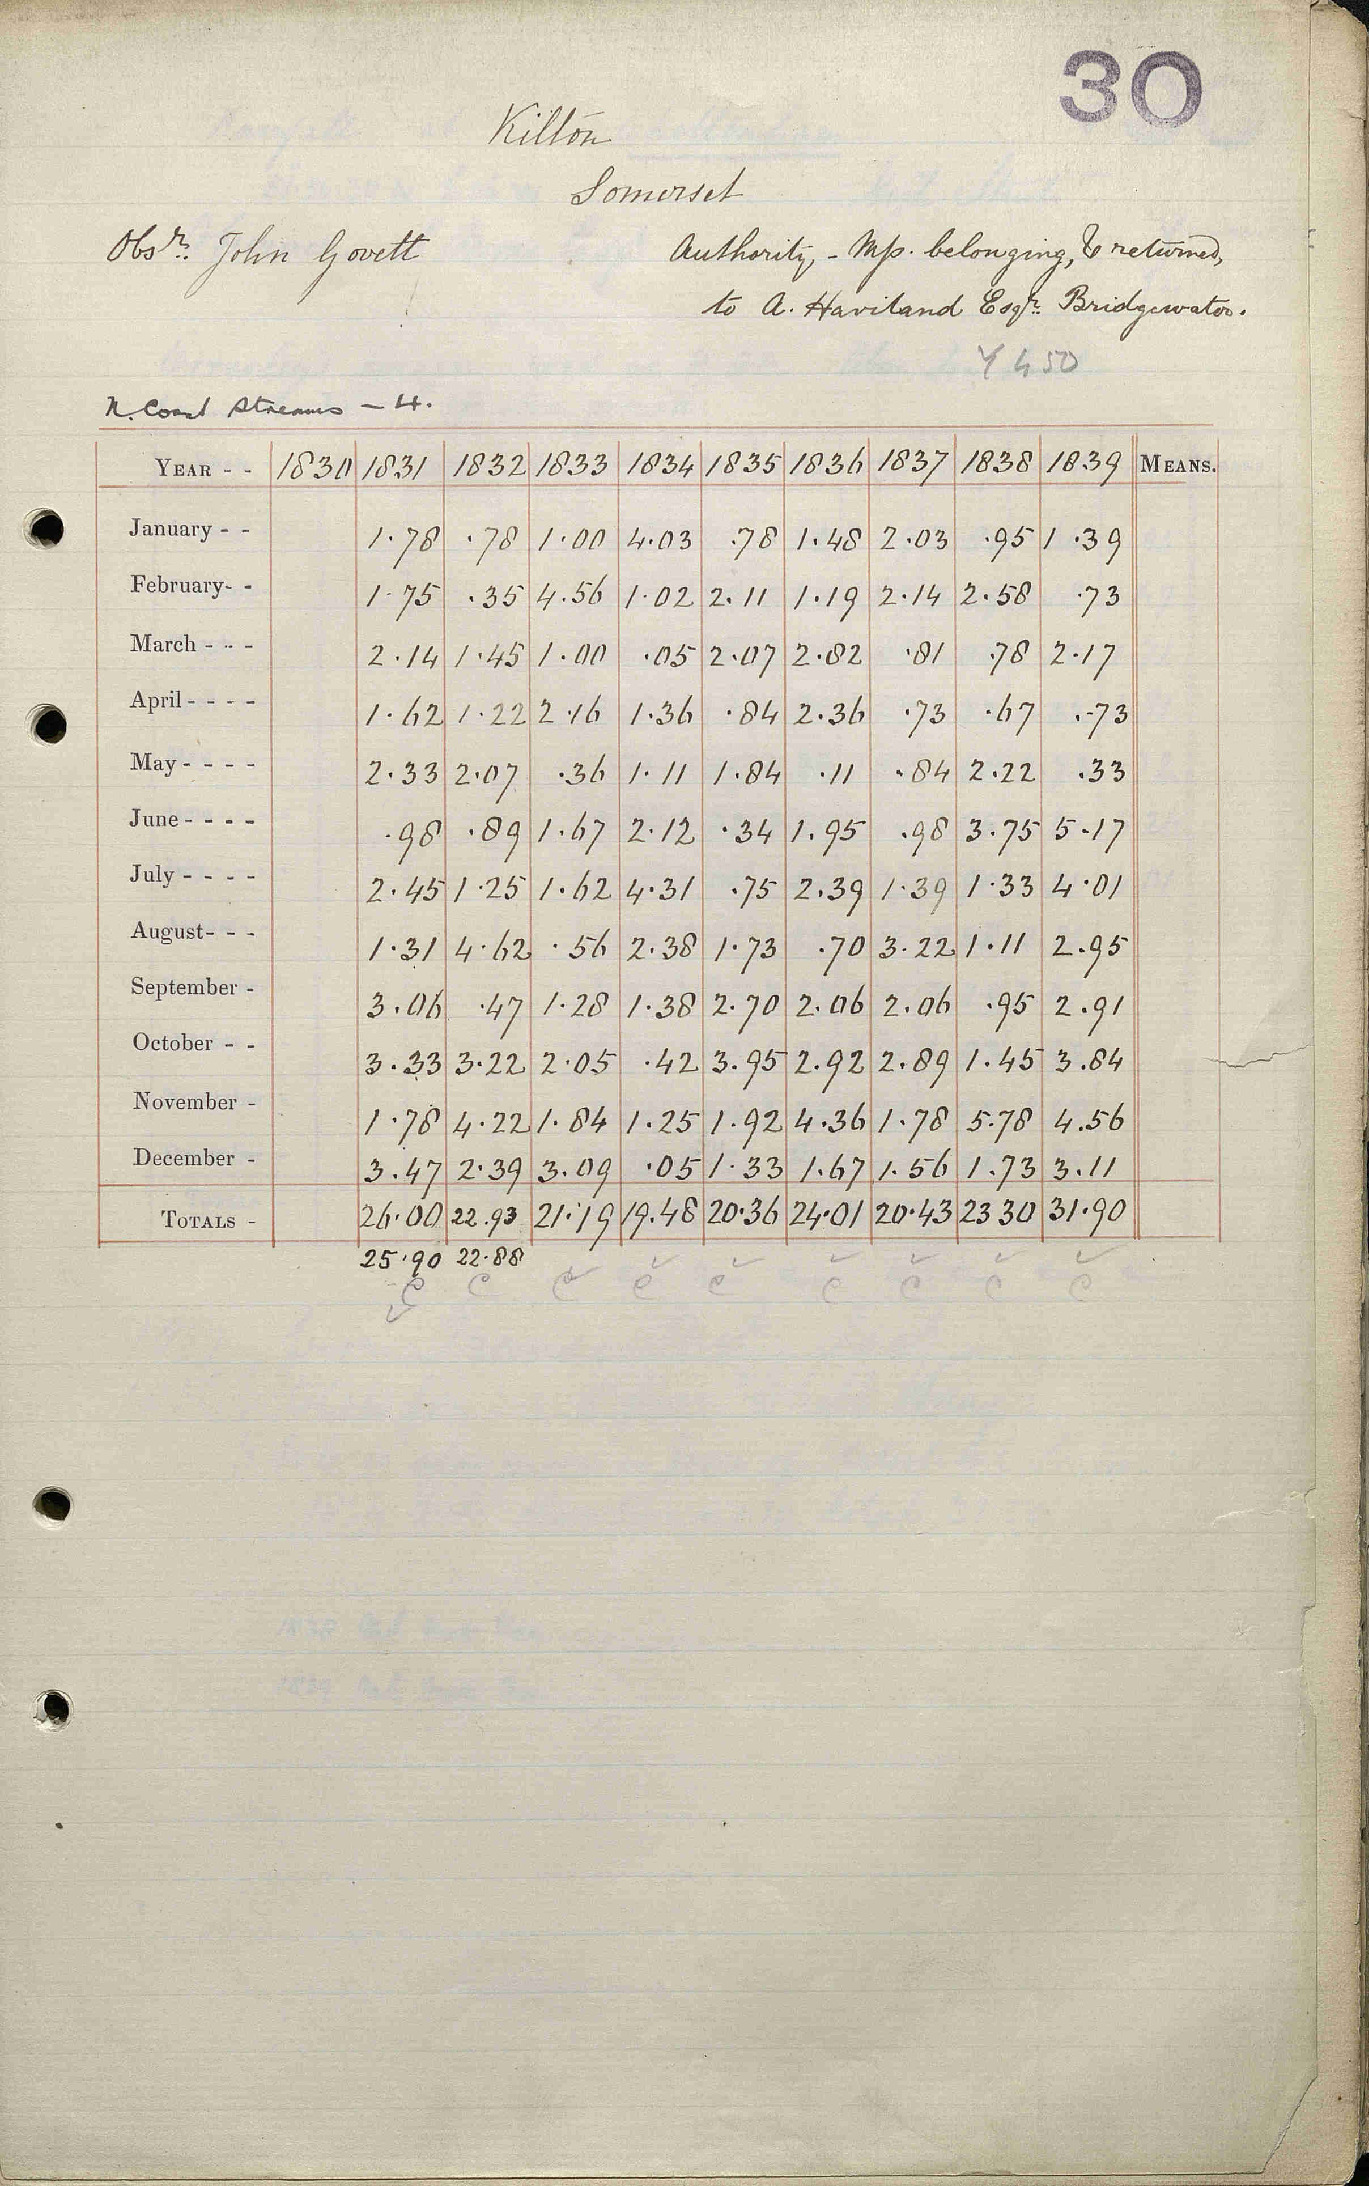 30
Kilton
Somerset
Obsr. John Govett
Authority, - Mss. belonging, & returned,
to A. Haviland Esqr. Bridgewater.
Y 450
N. Coast Streams - 4.
YEAR - - 1830 1831 1832 1833 1834 1835 1836 1837 1838 1839 MEANS.
January - - 1.78 .78 1.00 4.03 .78 1.48 2.03 .95 1.39
February- - 1.75 .35 4.56 1.02 2.11 1.19 2.14 2.58 .73
March - - - 2.14 1.45 1.00 .05 2.07 2.82 .81 .78 2.17
April - - - - 1.62 1.22 2.16 1.36 .84 2.36 .73 .67 .73
May - - - - 2.33 2.07 .36 1.11 1.84 .11 .84 2.22 .33
June - - - - .98 .89 1.67 2.12 .34 1.95 .98 3.75 5.17
July - - - - 2.45 1.25 1.62 4.31 .75 2.39 1.39 1.33 4.01
August- - - 1.31 4.62 .56 2.38 1.73 .70 3.22 1.11 2.95
September - 3.06 .47 1.28 1.38 2.70 2.06 2.06 .95 2.91
October - - 3.33 3.22 2.05 .42 3.95 2.92 2.89 1.45 3.84
November - 1.78 4.22 1.84 1.25 1.92 4.36 1.78 5.78 4.56
December - 3.47 2.39 3.09 .05 1.33 1.67 1.56 1.73 3.11
TOTALS - 26.00 22.93 21.19 19.48 20.36 24.01 20.43 23 30 31.90
25.90 22.88
C C C C C C C C C